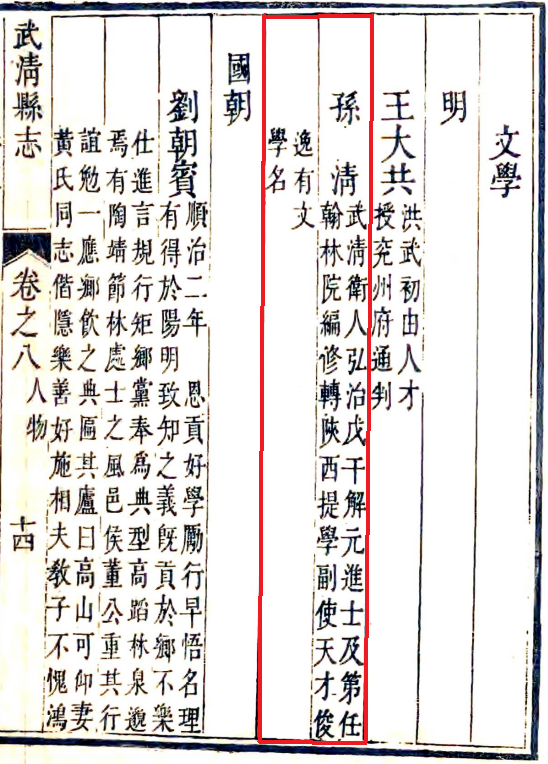 文學
明
王大共
洪武初由人才
授兖州府通判
孫清
武清衛人弘治戊午解元進士及第任
翰林院編修轉陝西提學副使天才俊
逸有文
學名
國朝
劉朝賓
順治二年 恩貢好學勵行早悟名理
有得於陽明致知之義旣貢於鄉不樂
仕進言規行矩鄉黨奉爲典型高蹈林泉邈
焉有陶靖節林處士之風邑侯董公重其行
誼勉一應鄉飲之典匾其廬曰高山可仰妻
黃氏同志偕隱樂善好施相夫敎子不愧鴻
武清縣志
卷之八
人物
十四